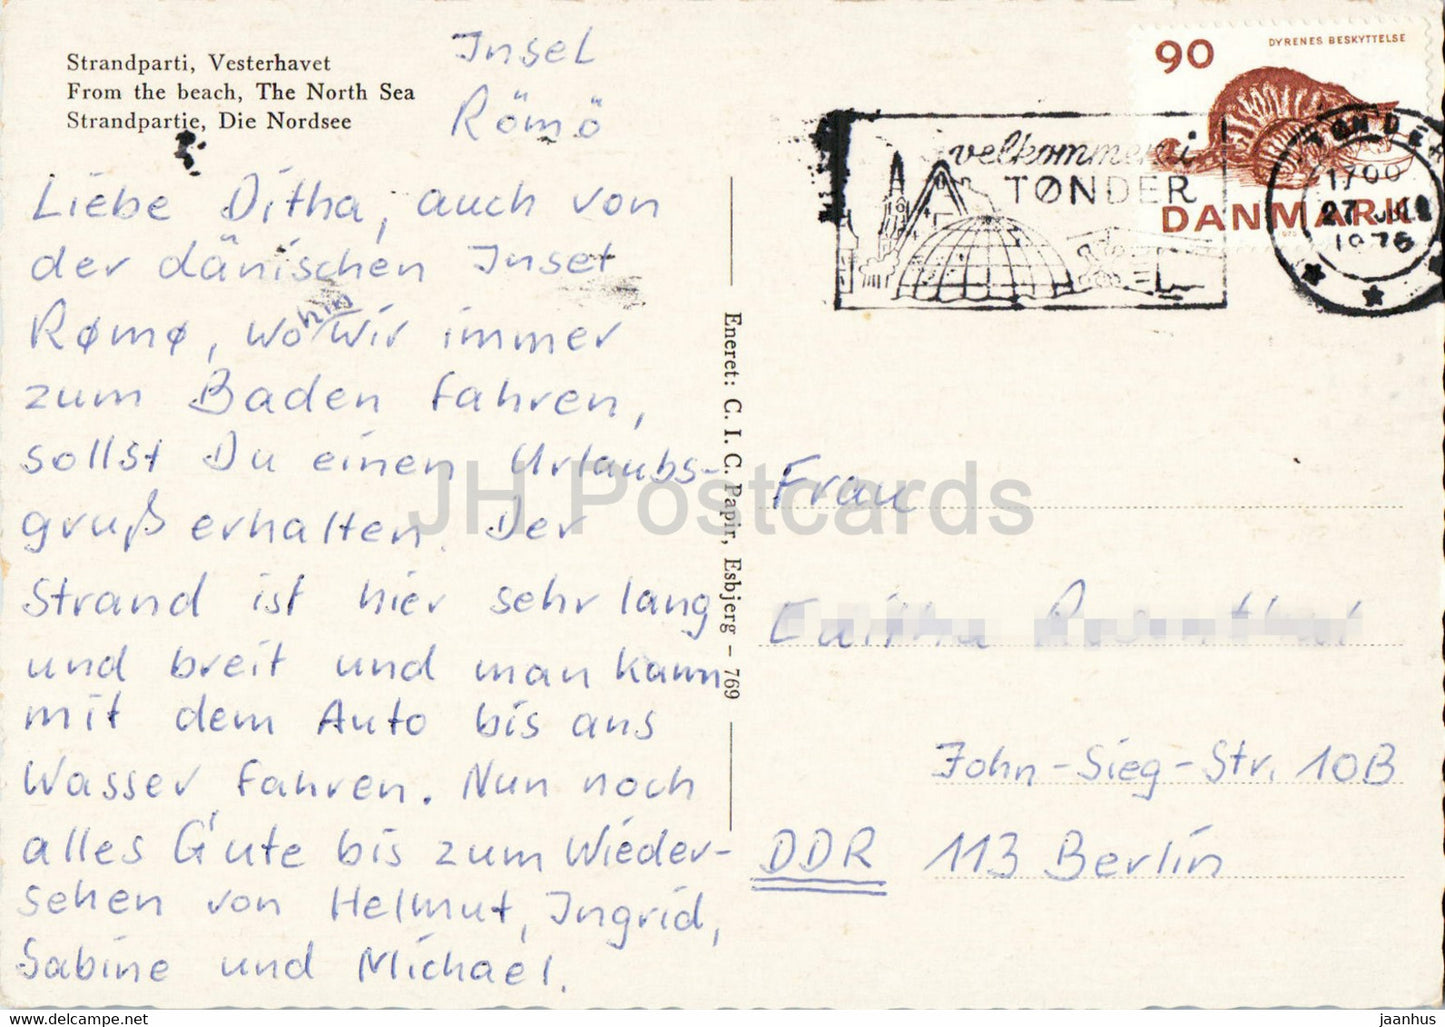 Strandparti, Vesterhavet
From the beach, The North Sea
Strandpartie, Die Nordsee
Insel
Römö
Liebe Ditha, auch von
der dänischen Insel
Rømø, wohin wir immer
zum Baden fahren,
sollst Du einen Urlaubs-
gruß erhalten. Der
Strand ist hier sehr lang
und breit und man kann
mit dem Auto bis ans
Wasser fahren. Nun noch
alles Gute bis zum Wieder-
sehen von Helmut, Ingrid,
Sabine und Michael.
Eneret: C. I. C. Papir, Esbjerg - 769
90
DYRENES BESKYTTELSE
DANMARK
velkommen i
TØNDER
TØNDER
1700
27 JUL
1976
Frau
John-Sieg-Str. 10B
DDR 113 Berlin
JH Postcards
www.delcampe.net
jaanhus